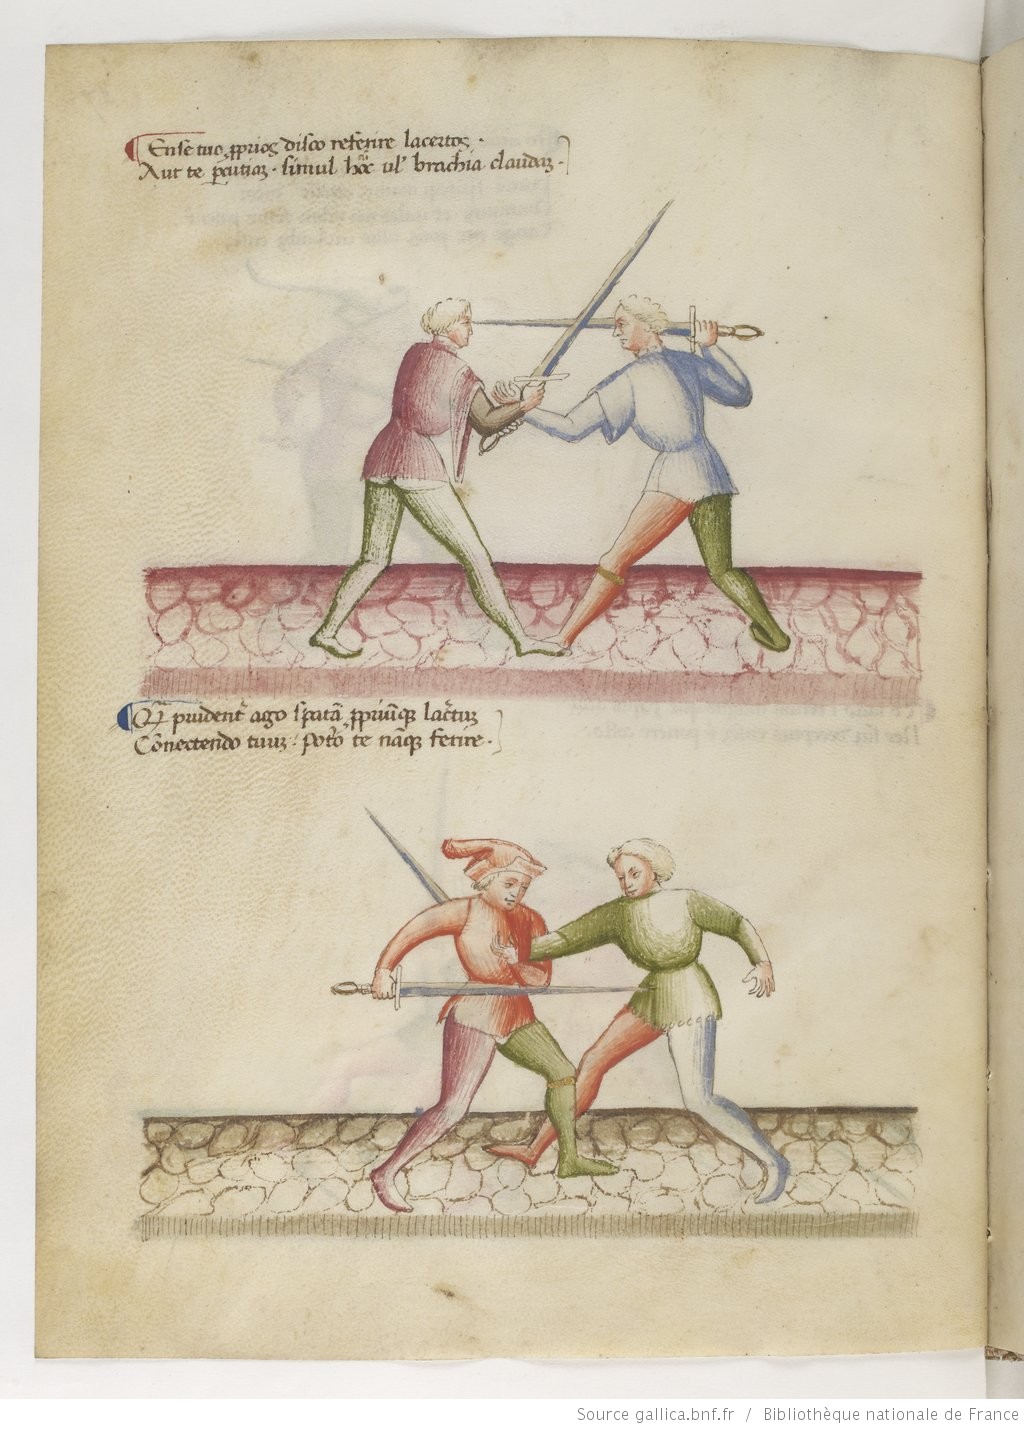 Ense tuo ꝓprios disco referire lacertos .
Aut te ꝑcutiaꝫ . simul hoc ul' brachia claudaꝫ .
prudentr̄ ago spatā ꝓpriūqꝫ
Cōnectendo tuuꝫ : te nāqꝫ ferire .
Source gallica.bnf.fr / Bibliothèque nationale de France